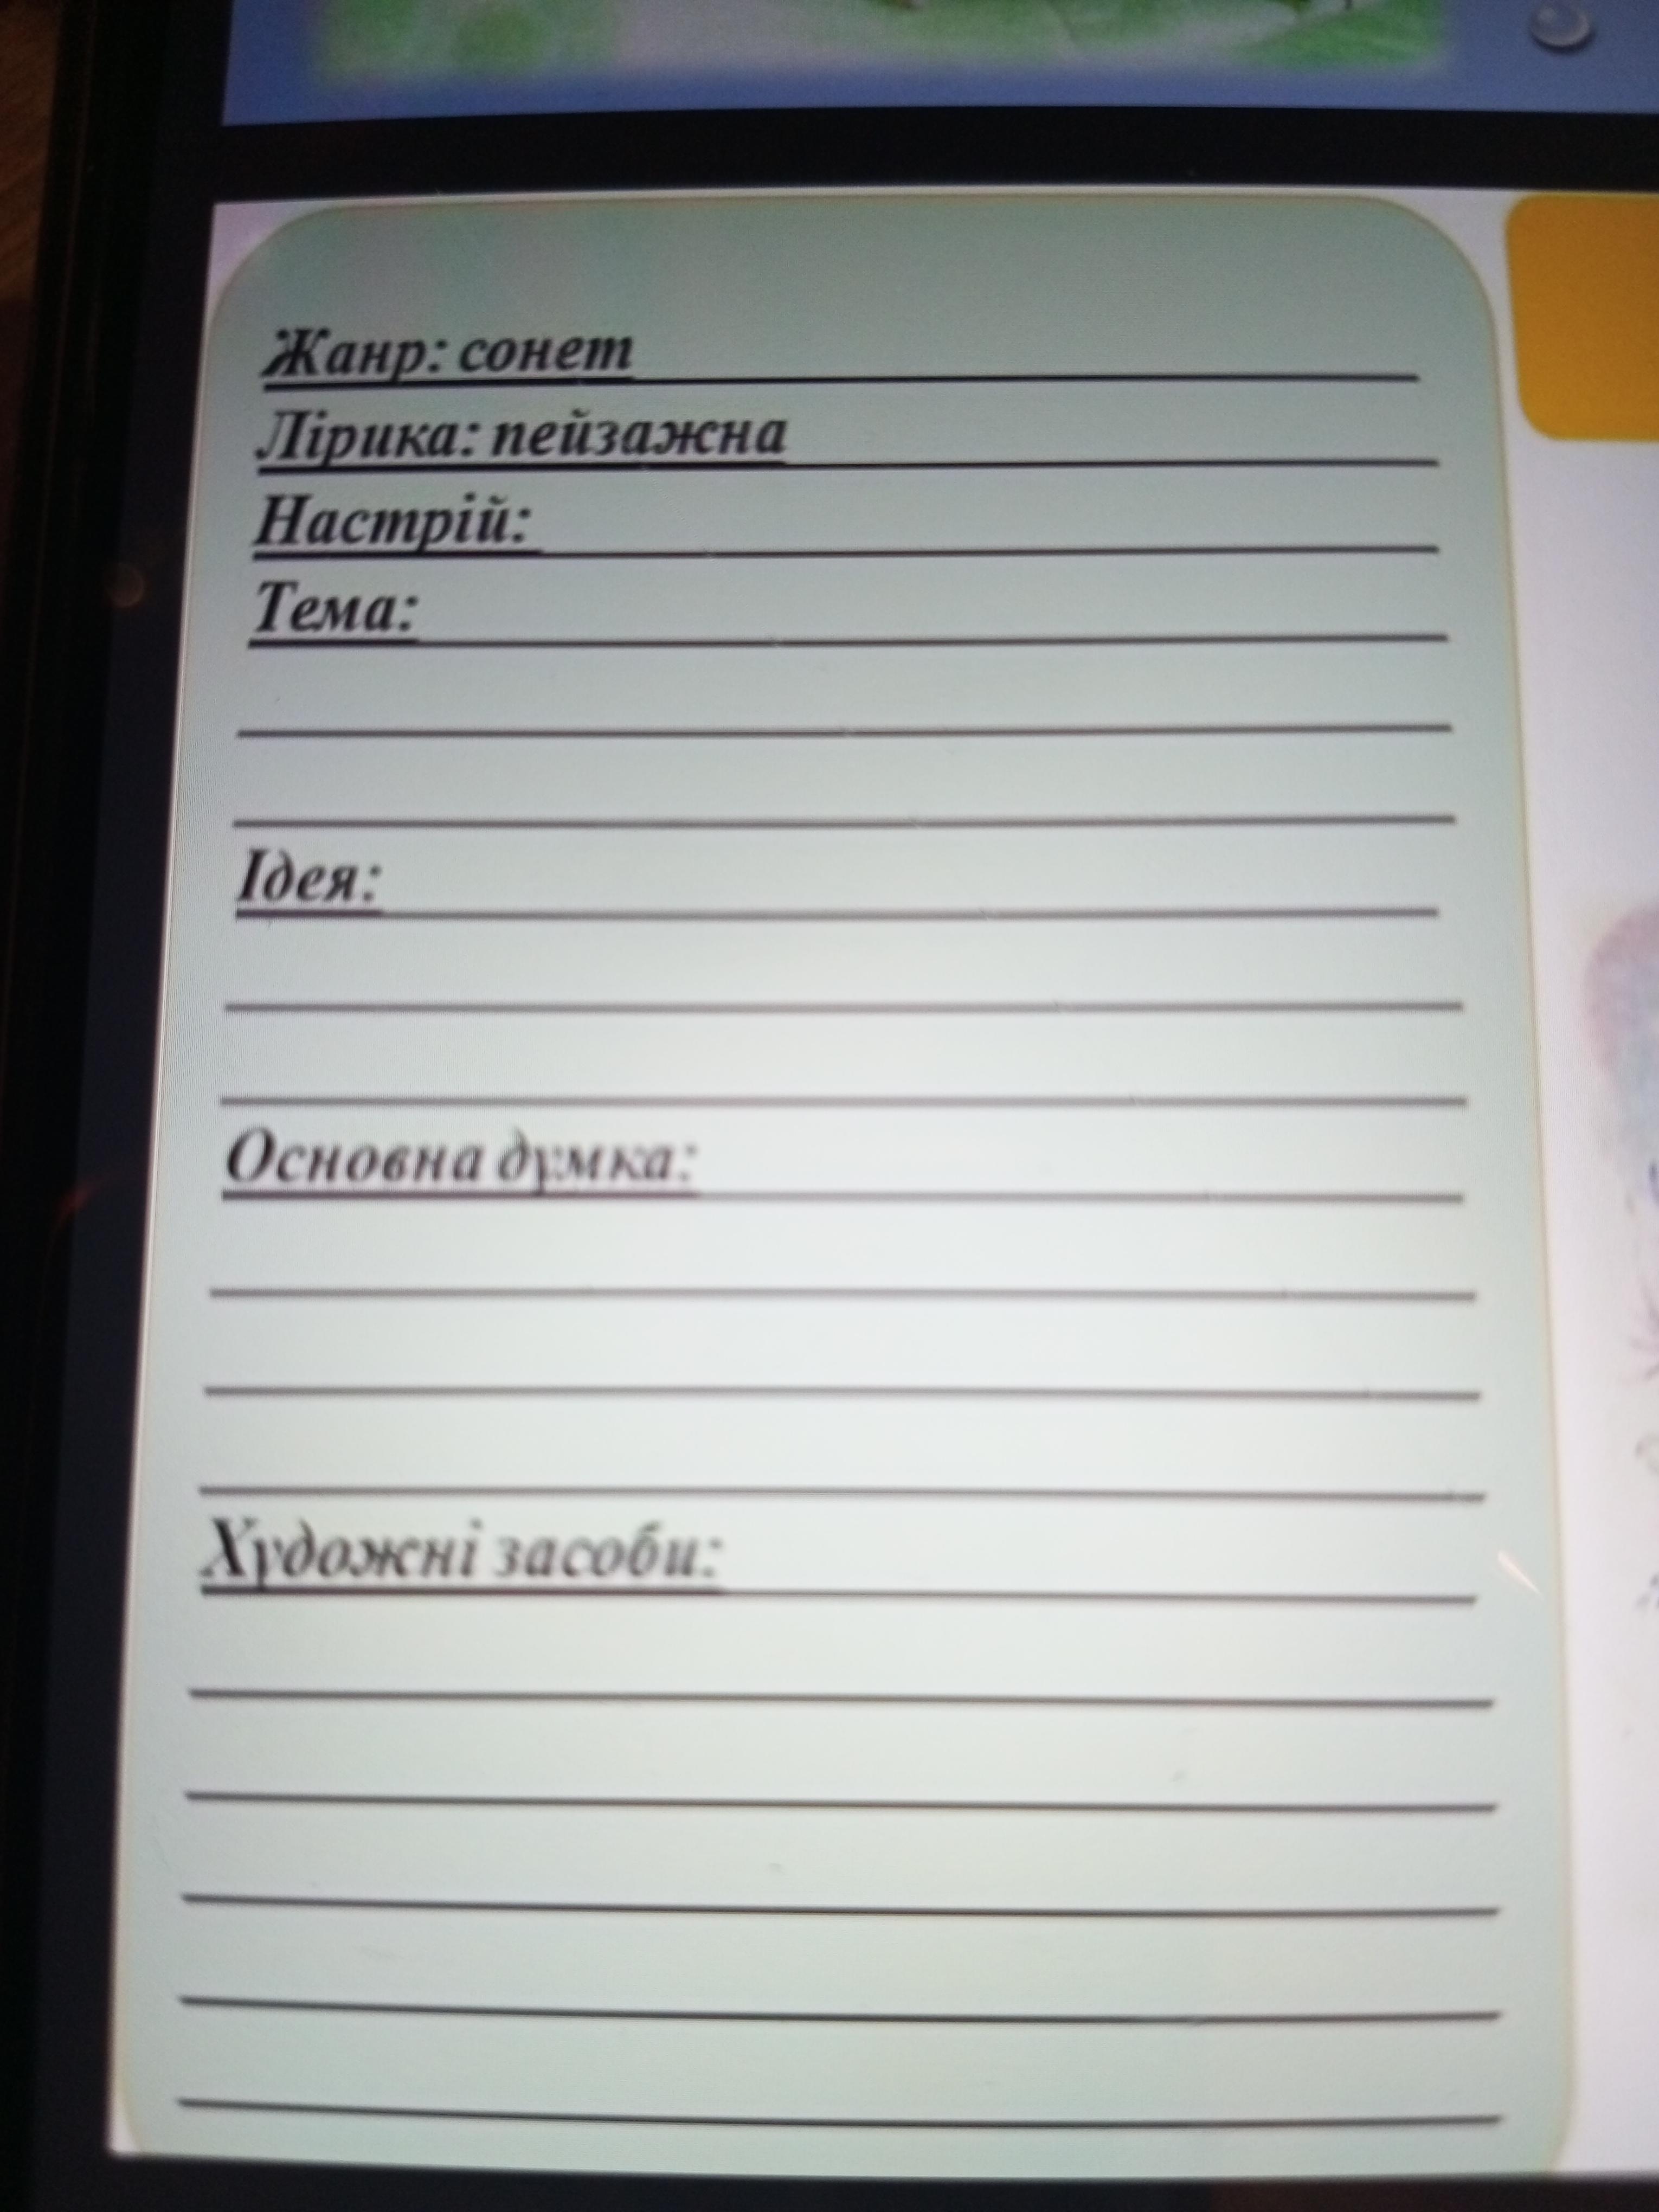 Жанр: сонет
Лірика: пейзажна
Настрій:
Тема:
Ідея:
Основна думка:
Художні засоби: